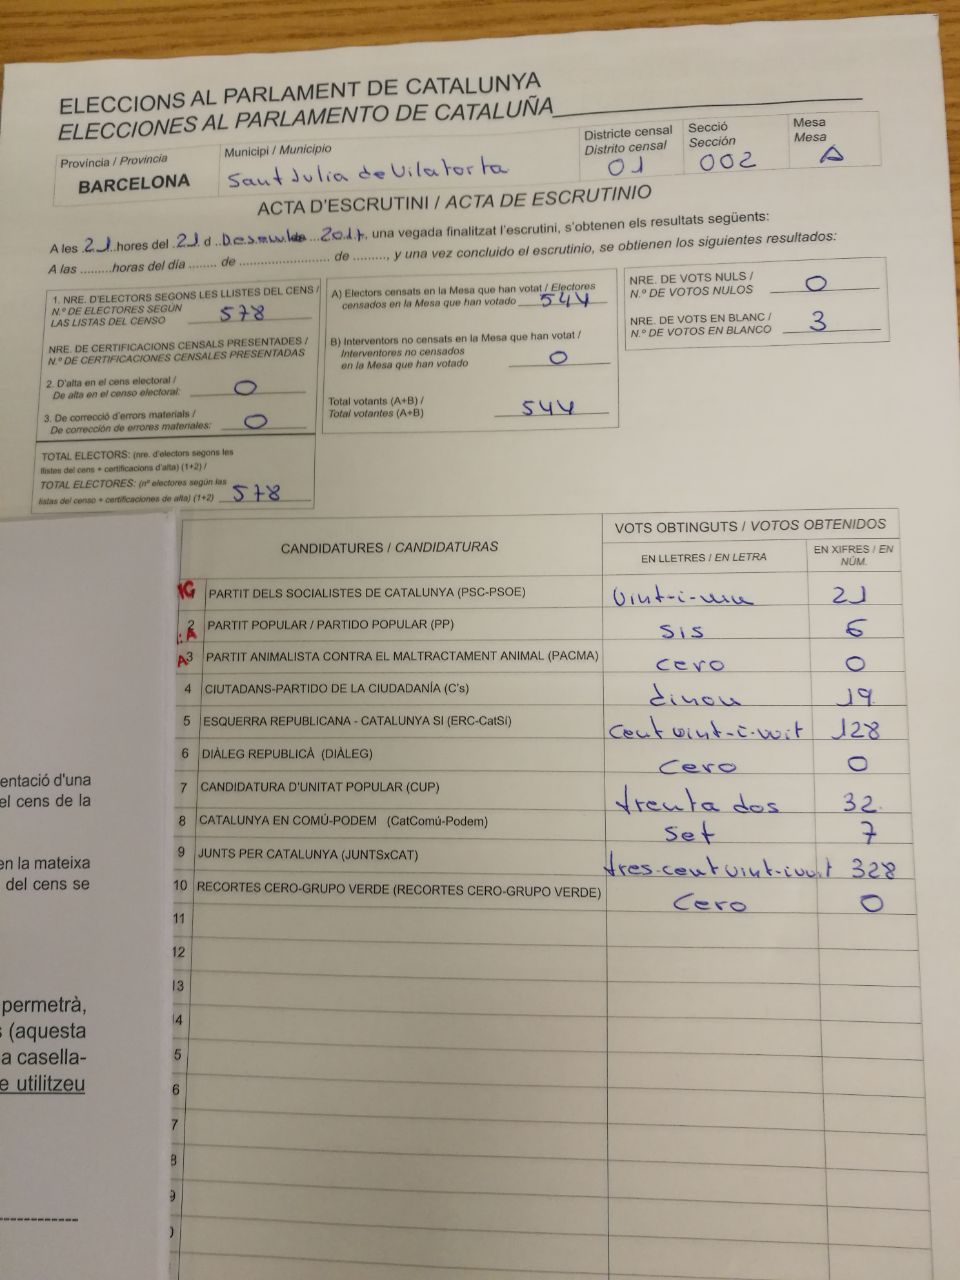 ELECCIONS AL PARLAMENT DE CATALUNYA
ELECCIONES AL PARLAMENTO DE CATALUÑA
Província / Provincia
BARCELONA
Municipi / Municipio
Sant Julia de Vilatorta
Districte censal
Distrito censal
01
Secció
Sección
002
Mesa
Mesa
A
ACTA D'ESCRUTINI / ACTA DE ESCRUTINIO
A les 21 hores del 21 d Desembre 2017, una vegada finalitzat l'escrutini, s'obtenen els resultats següents:
A las .........horas del día ........ de .......................... de ........., y una vez concluido el escrutinio, se obtienen los siguientes resultados:
1. NRE. D'ELECTORS SEGONS LES LLISTES DEL CENS /
N.º DE ELECTORES SEGÚN
LAS LISTAS DEL CENSO 578
NRE. DE CERTIFICACIONS CENSALS PRESENTADES /
N.º DE CERTIFICACIONES CENSALES PRESENTADAS
2. D'alta en el cens electoral /
De alta en el censo electoral: 0
3. De correcció d'errors materials /
De corrección de errores materiales: 0
TOTAL ELECTORS: (nre. d'electors segons les
llistes del cens + certificacions d'alta) (1+2) /
TOTAL ELECTORES: (nº electores según las
listas del censo + certificaciones de alta) (1+2) 578
A) Electors censats en la Mesa que han votat / Electores
censados en la Mesa que han votado 544
B) Interventors no censats en la Mesa que han votat /
Interventores no censados
en la Mesa que han votado 0
Total votants (A+B) /
Total votantes (A+B) 544
NRE. DE VOTS NULS /
N.º DE VOTOS NULOS 0
NRE. DE VOTS EN BLANC /
N.º DE VOTOS EN BLANCO 3
CANDIDATURES / CANDIDATURAS
VOTS OBTINGUTS / VOTOS OBTENIDOS
EN LLETRES / EN LETRA
EN XIFRES / EN
NÚM.
PARTIT DELS SOCIALISTES DE CATALUNYA (PSC-PSOE) vint-i-un 21
2 PARTIT POPULAR / PARTIDO POPULAR (PP) sis 6
3 PARTIT ANIMALISTA CONTRA EL MALTRACTAMENT ANIMAL (PACMA) cero 0
4 CIUTADANS-PARTIDO DE LA CIUDADANÍA (C's) dinou 19
5 ESQUERRA REPUBLICANA - CATALUNYA SI (ERC-CatSí) cent vint-i-vuit 128
6 DIÀLEG REPUBLICÀ (DIÀLEG) cero 0
7 CANDIDATURA D'UNITAT POPULAR (CUP) trenta dos 32
8 CATALUNYA EN COMÚ-PODEM (CatComú-Podem) set 7
9 JUNTS PER CATALUNYA (JUNTSxCAT) tres-cent vint-i-vuit 328
10 RECORTES CERO-GRUPO VERDE (RECORTES CERO-GRUPO VERDE) cero 0
11
12
13
14
5
6
7
8
9
entació d'una
el cens de la
en la mateixa
del cens se
permetrà,
s (aquesta
a casella-
e utilitzeu